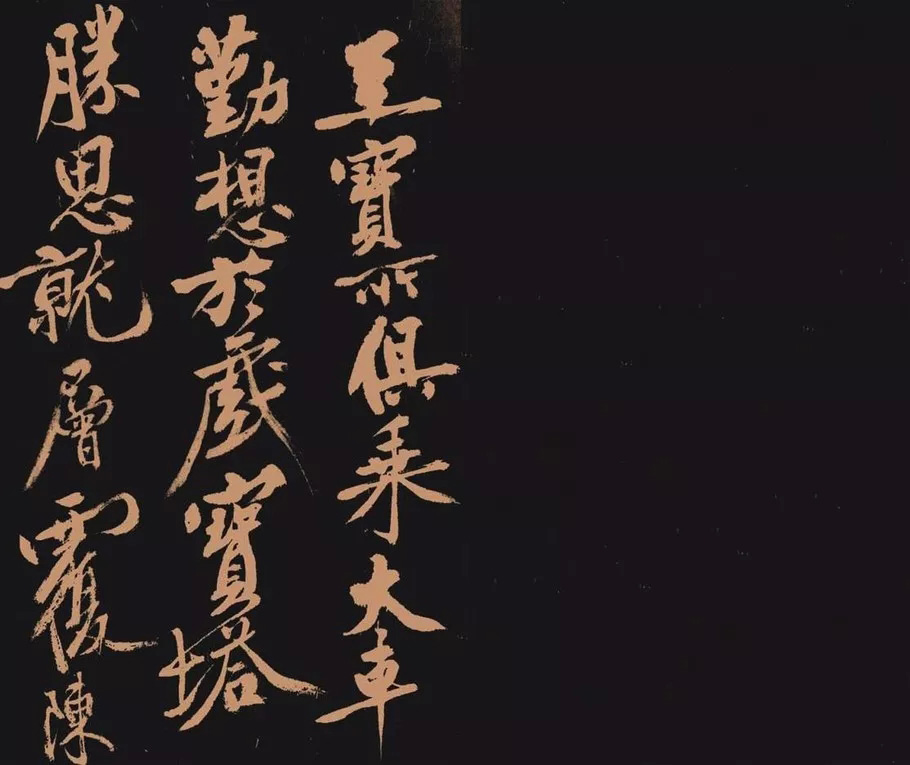 至寶所俱乘大車
勤想於寶塔
勝思就層覆陳